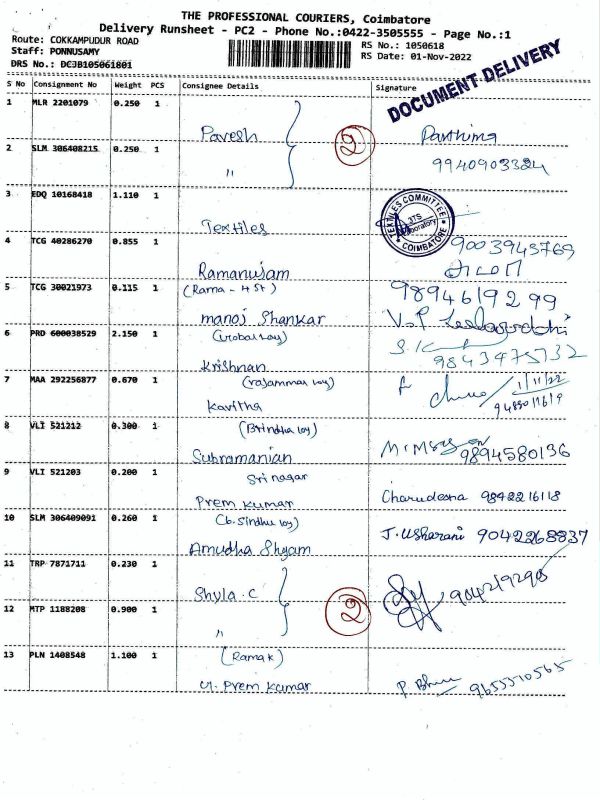 THE PROFESSIONAL COURIERS, Coimbatore
Delivery Runsheet - PC2 - Phone No.:0422-3505555 - Page No.:1
Route: COKKAMPUDUR ROAD
RS No.: 1050618
Staff: PONNUSAMY
RS Date: 01-Nov-2022
DRS No.: DC3B105061801
DOCUMENT DELIVERY
S No Consignment No Weight PCS Consignee Details Signature
1 MLR 2201079 0.250 1
Pavesh 2 Parthima
2 SLM 306408215 0.250 1
" 9940903324
3 EDQ 10168418 1.110 1
Textiles
TEXTILES COMMITTEE
3TS
Laboratory
COIMBATORE
4 TCG 40286270 0.855 1
9003943769
Ramanujam
5 TCG 30021973 0.115 1 (Rama - 4 St)
9894619299
Manoj Shankar
6 PRD 600038529 2.150 1
9843475732
Krishnan
7 MAA 292256877 0.670 1
1/11/22
Kavitha
8 VLI 521212 0.300 1 (Brindha loy)
Subramanian 9894580136
9 VLI 521203 0.200 1 Sri nagar
Prem Kumar Charudesna 9842216118
10 SLM 306409091 0.260 1 (b. Sindhu loy)
Amudha Shyam J. Usharani 9042268837
11 TRP 7871711 0.230 1
Shyla. C 2
12 MTP 1188208 0.900 1
"
13 PLN 1408548 1.100 1 (Rama k)
M. Prem Kumar 9655510565